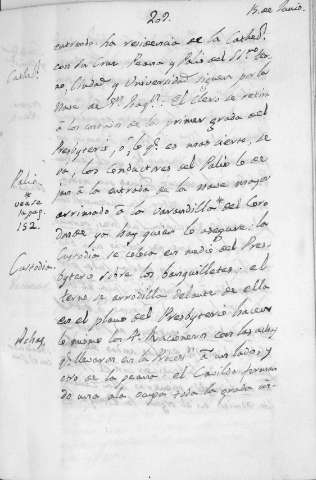 209.
13. de Junio.
entrando la residencia de la Cathed.l
con la Cruz Parra y Palio del SS.mo
no, Ciudad y Universidad siguen por la
Nave de N.
El Clero se retira
à los costados de la primer grada del
Presbyterio, ò, lo q.e es mas cierto, se
va; los conductores del Palio lo de
jan à la entrada de la nave mayor
arrimado à la varandilla del Coro
donde ya hay quien lo asegure: la
Custodia se coloca en medio del Pres-
byterio sobre los banquilletes: el
terno se arrodilla delante de ella
en el plano del Presbyterio: hacen
lo mismo los S.res Racioneros con las achas
q.e llevaron en la Proces.n à un lado, y
otro de la peana: el Cavildo forman
do una ala ocupa toda la grada
Cathed.l
Palio
vease
la pag.
152.
Custodia.
Achas,